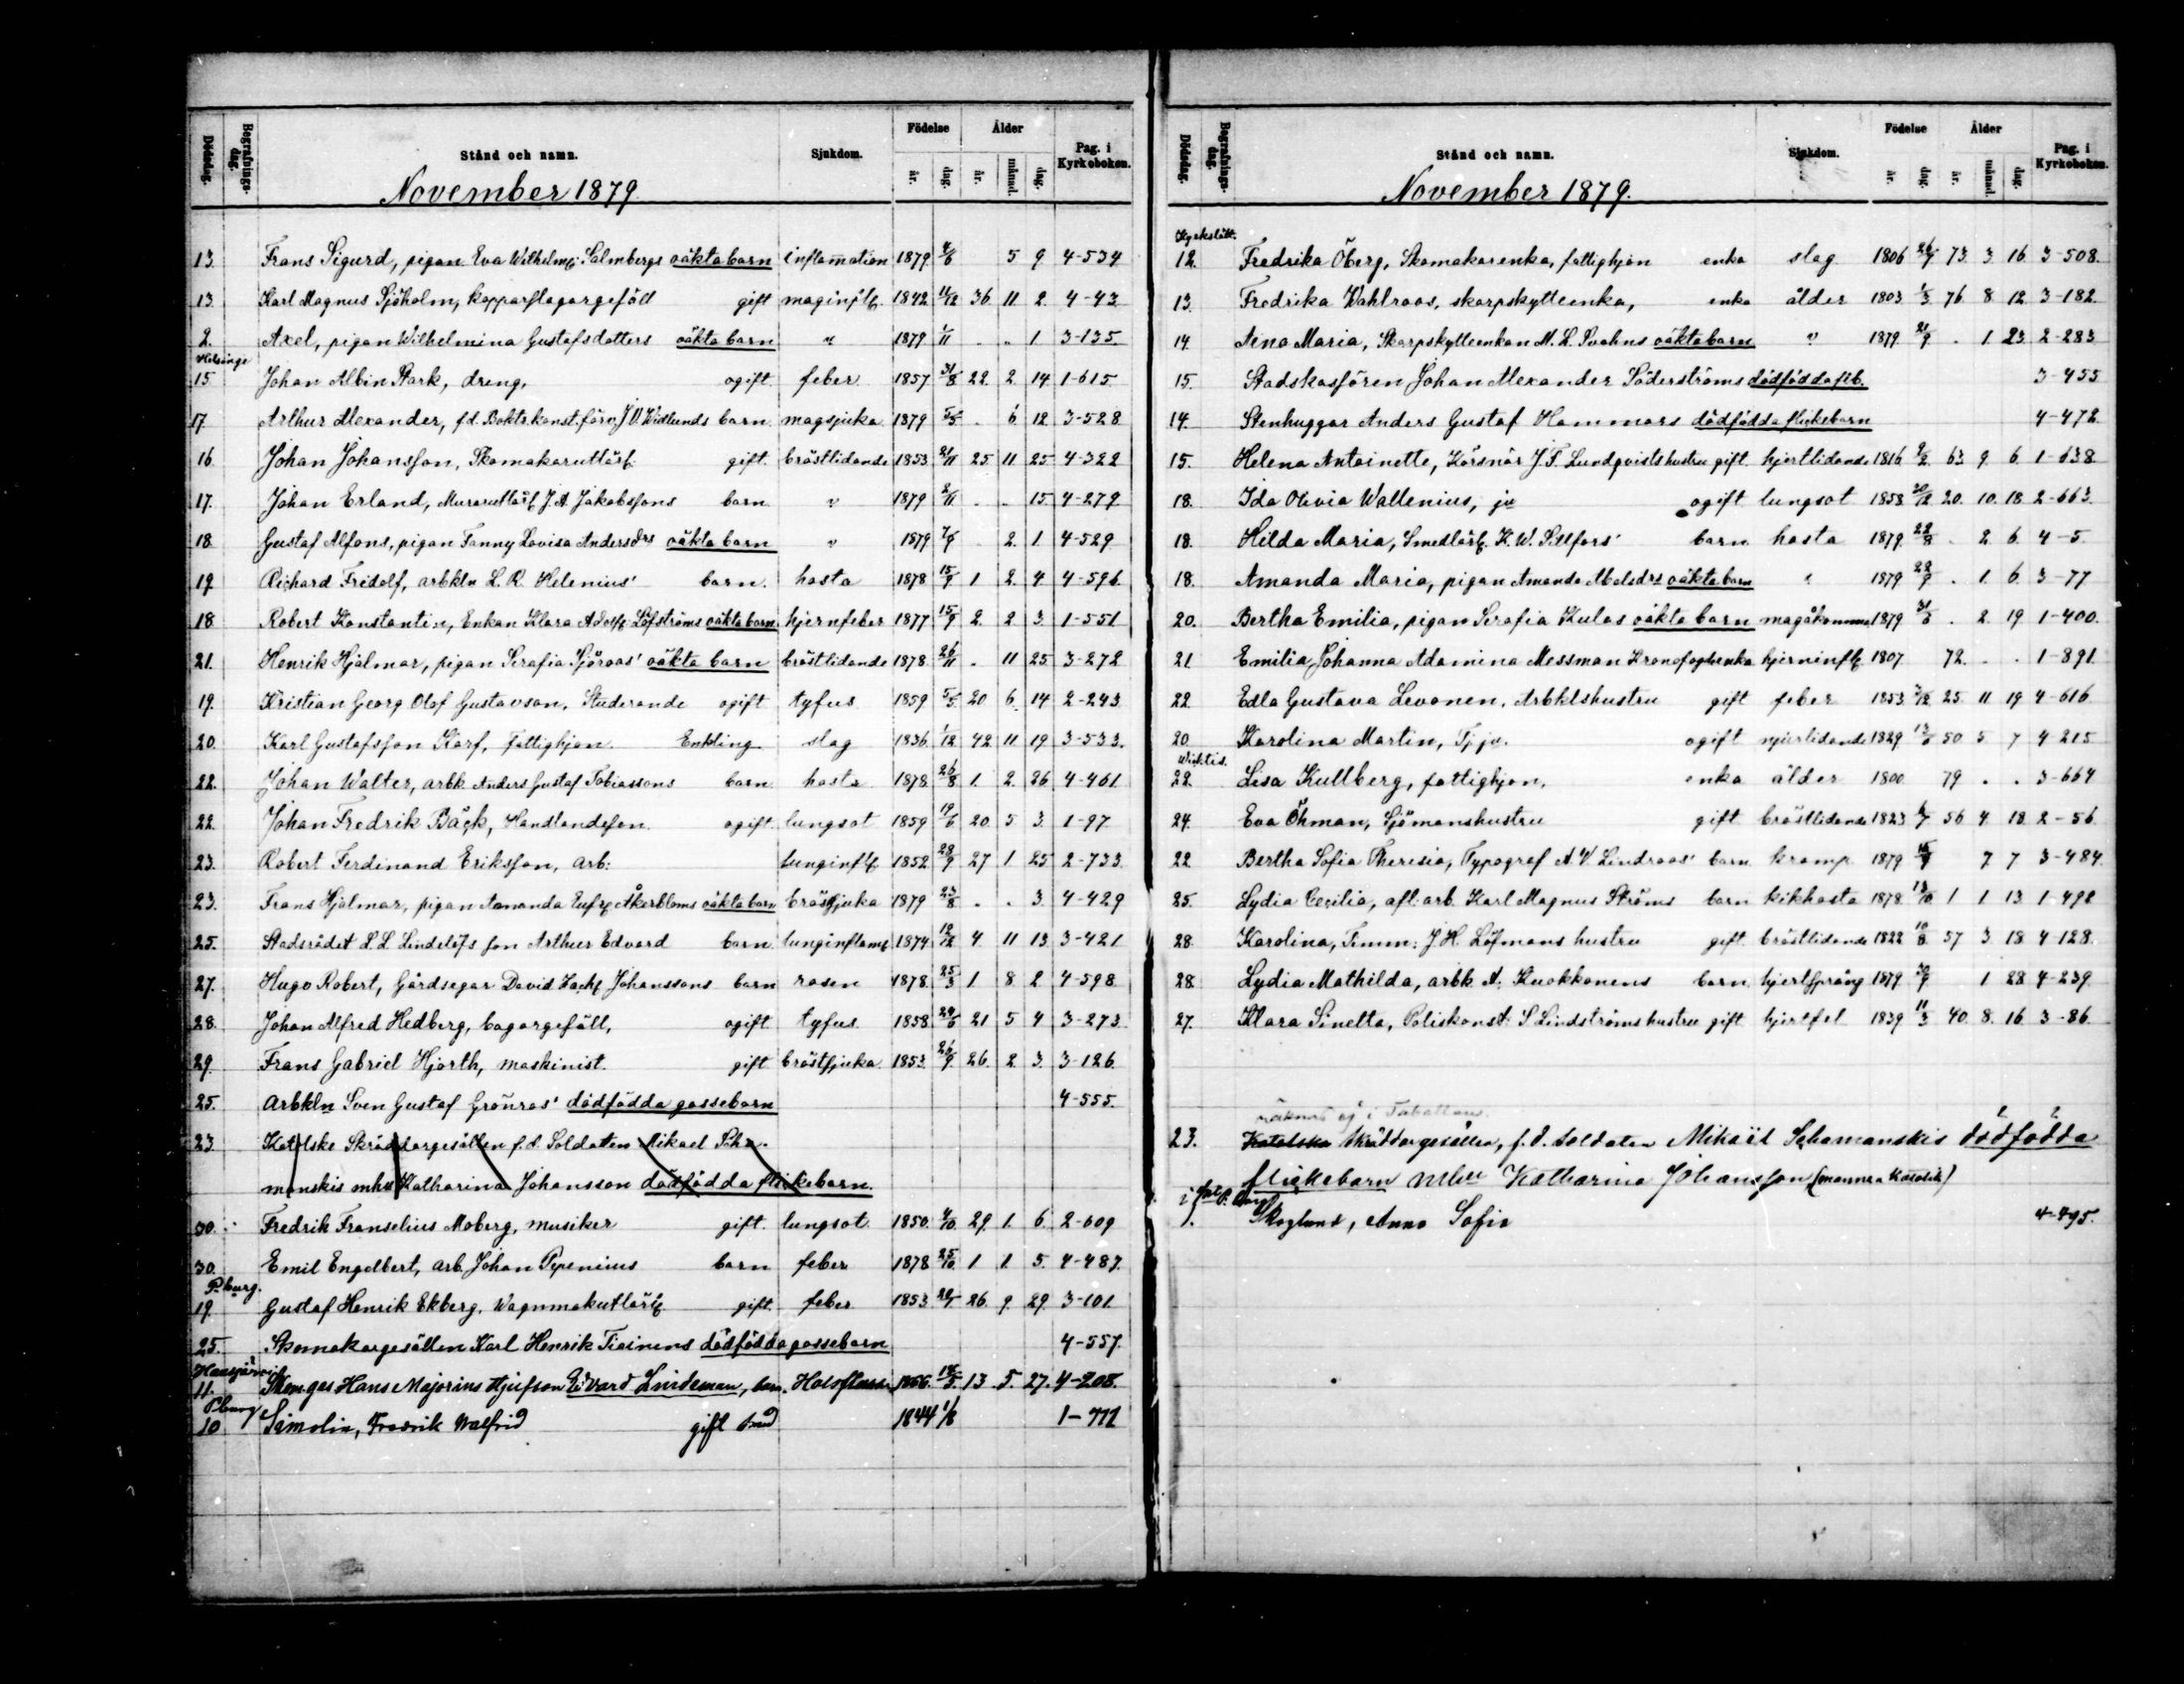 Dödsdag. Begrafnings-dag. Stånd och namn. Sjukdom. Födelse år. dag. Ålder år. månad. dag. Pag. i Kyrkoboken.
November 1879
13. Frans Sigurd, pigan Eva Wilhelm: Salmbergs oäkta barn inflamation 1879 4/6 5 9 4-534
13. Karl Magnus Sjöholm, kopparslagargesäll gift maginfl: 1842 11/12 36 11 2 4-43
2. Axel, pigan Wilhelmina Gustafsdotters oäkta barn " 1879 1/11 . . 1 3-135
Helsinge
15 Johan Albin Stark, dreng, ogift feber 1857 31/8 22 2 14 1-615
17 Arthur Alexander, f.d. Boktr.konst.förv. J.V. Widlunds barn magsjuka 1879 5/5 . 6 12 3-528
16 Johan Johansson, Skomakarutlärl: gift bröstlidande 1853 21/11 25 11 25 4-322
17. Johan Erland, Murarutlärl J.A. Jakobssons barn " 1879 2/11 . . 15 4-279
18 Gustaf Alfons, pigan Fanny Lovisa Andersdrs oäkta barn " 1879 . 2 1 4-529
19 Richard Fridolf, arbkln L.R. Helenius' barn hosta 1878 15/9 1 2 4 4-596
18 Robert Konstantin, Enkan Klara Adolf: Löfströms oäkta barn hjernfeber 1877 15/9 2 2 3 1-551
21. Henrik Hjalmar, pigan Serafia Sjöroos' oäkta barn bröstlidande 1878 26/11 . 11 25 3-272
19. Kristian Georg Olof Gustavson, Studerande ogift tyfus 1859 5/5 20 6 14 2-243
20. Karl Gustafsson Karf, Fattighjon. Enkling slag 1836 1/12 42 11 19 3-533.
22. Johan Walter, arbk. Anders Gustaf Tobiassons barn hosta 1878 26/8 1. 2. 26 4-461
22. Johan Fredrik Bäck, Handlandesson ogift lungsot 1859 19/6 20 5 3 1-97
23. Robert Ferdinand Eriksson, arb: lunginfl: 1852 28/9 27 1 25 2-733
23. Frans Hjalmar, pigan Amanda Åkerbloms oäkta barn bröstsjuka 1879 23/8 . . 3 4-429
25. Stadsrådet L.L. Lindelöfs son Arthur Edvard barn lunginflam: 1874 12/12 4 11 13 3-421
27. Hugo Robert, Gårdsegar David Zach: Johanssons barn rosen 1878 25/3 1 8 2 4-598
28. Johan Alfred Hedberg, bagargesäll, ogift tyfus 1858 24/6 21 5 4 3-273
29. Frans Gabriel Hjorth, maskinist. gift bröstsjuka 1853 26/9 26. 2. 3. 3-126
25. Arbkln Sven Gustaf Grönros' dödfödda gossebarn 4-555.
23 Katolske Skräddargesällen f.d. Soldaten Mikael Scha-
manskis mhu Katharina Johansson dödfödda flickebarn.
30. Fredrik Franselius Moberg, musiker gift lungsot 1850 4/10 29 1. 6 2-609
30. Emil Engelbert, arb. Johan Pepenius barn feber 1878 25/10 1 1. 5. 4-487.
P.burg.
19 Gustaf Henrik Ekberg, Wagnmakutlärl: gift feber 1853 20/1 26 9 29 3-101
25. Skomakargesällen Karl Henrik Tiainens dödfödda gossebarn 4-557.
11. Hans Majorins Edvard Lindeman, barn 1866 13 5 27 4-208.
P.burg
10 Simolin, Fredrik Walfrid gift 1844 1/8 1-772
Dödsdag. Begrafnings-dag. Stånd och namn. Sjukdom. Födelse år. dag. Ålder år. månad. dag. Pag. i Kyrkoboken.
November 1879.
Kyrkslätt.
12. Fredrika Öberg, Skomakarenka, fattighjon enka slag 1806 26/7 73 3 16 3-508.
13. Fredrika Wahlroos, skarpskytteenka, enka ålder 1803 1/3 76 8 12 3-182
14. Aina Maria, Skarpskytteenkan M.L. Svahns oäkta barn " 1879 21/9 . 1. 23 2-283
15. Stadskasören Johan Alexander Söderströms dödfödda flb. 3-455
14. Stenhuggar Anders Gustaf Hammars dödfödda flickebarn 4-472
15. Helena Antoinette, Körsnär J.F. Lundqvists hustru gift hjertlidande 1816 9/2 63 9 6 1-638
18. Ida Olivia Wallenius, ju ogift lungsot 1858 30/12 20. 10. 18 2-663
18. Hilda Maria, Smedlärl. K.W. Sillfors' barn hosta 1879 22/8 . 2 6 4-5
18. Amanda Maria, pigan Amanda Abelsdrs oäkta barn " 1879 22/9 . 1. 6 3-77
20. Bertha Emilia, pigan Serafia Kulas oäkta barn magåkomma 1879 31/8 . 2 19 1-400.
21 Emilia Johanna Adamina Messman Kronofogdeenka hjerninfl: 1807 72. . . 1-891
22 Edla Gustava Levonen, Arbklshustru gift feber 1853 3/12 25 11 19 4-616
20 Karolina Martin, Tj.ju. ogift njurlidande 1829 13/6 50 5 7 4-215
Wichtis.
22. Lisa Kullberg, fattighjon, enka ålder 1800 79 . . 3-664
24. Eva Öhman, Sjömanshustru gift bröstlidande 1823 6/7 56 4 18 2-56
22 Bertha Sofia Theresia, Typograf A.V. Lindroos' barn kramp 1879 7 7 3-484.
25. Lydia Cecilia, afl: arb. Karl Magnus Ströms barn kikhosta 1878 12/10 1 1 13 1-492
28. Karolina, Timm: J.H. Löfmans hustru gift bröstlidande 1822 10/8 57 3 18 4-128.
28 Lydia Mathilda, arbk. A. Kuokkanens barn hjertsprång 1879 30/9 1 28 4-239
27. Klara Sinetta, Poliskonst: S. Lindströms hustru gift hjertfel 1839 11/3 40. 8. 16 3-86.
räknas ej i Tabellen.
23. Katolske Skräddargesällen, f.d. Soldaten Mikael Schamanskis dödfödda
flickebarn mhu Katharina Johansson (mannen Katolik)
Skoglund, Anna Sofia 4-495.